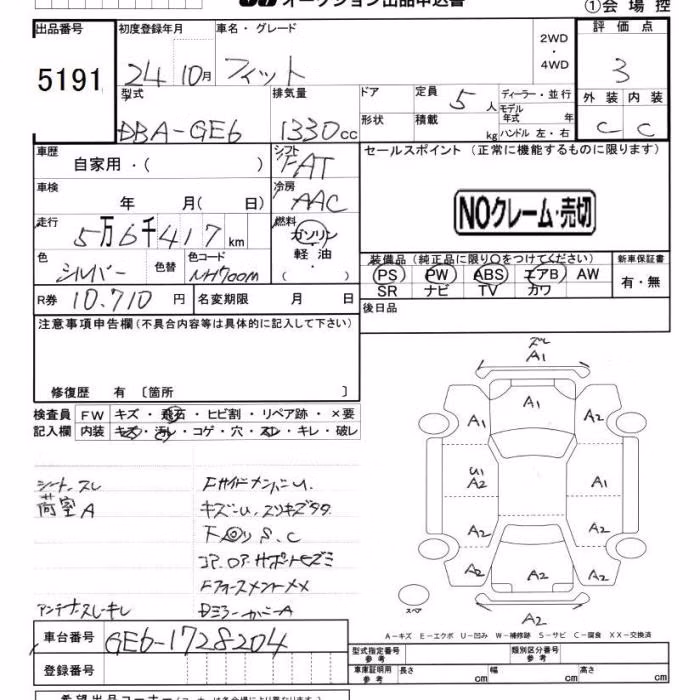 オークション出品申込書
①会場控
出品番号
5191
初度登録年月
24年10月
車名・グレード
フィット
2WD
・
4WD
評価点
3
外装 内装
C C
型式
DBA-GE6
排気量
1330cc
ドア
定員 5人
ディーラー・並行
形状
積載 kg
モデル年式 年
ハンドル 左・右
車歴
自家用・( )
シフト
FAT
車検
年 月( 日)
冷房
AAC
走行
5万6千417km
燃料
ガソリン
軽油
( ・ )
色
シルバー
色替
色コード
NH700M
R券 10.710円
名変期限 月 日
セールスポイント(正常に機能するものに限ります)
NOクレーム・売切
装備品(純正品に限り○をつけてください)
PS PW ABS エアB AW
SR ナビ TV カワ
新車保証書
有・無
後日品
注意事項申告欄(不具合内容等は具体的に記入して下さい)
修復歴 有 〔箇所 〕
検査員記入欄
FW キズ・飛石・ヒビ割・リペア跡・×要
内装 キズ・汚レ・コゲ・穴・スレ・キレ・破レ
シート.スレ
荷室A
アンテナスレキレ
FサイドメンバーU.
キズーU.スリキズタタ
下回りS.C
コア.ロア.サポートヒズミ
Dミラーカバー A
ズレ
A1
A1
A1
A2
U1
A2
A1
A2
A2
A2
A2
A2
A2
スペア
A-キズ E-エクボ U-凹み W-補修跡 S-サビ C-腐食 XX-交換済
車台番号
GE6-1728204
登録番号
型式指定番号
参考
類別区分番号
参考
車庫証明用
参考
長さ cm
幅 cm
高さ cm
希望出品コーナー